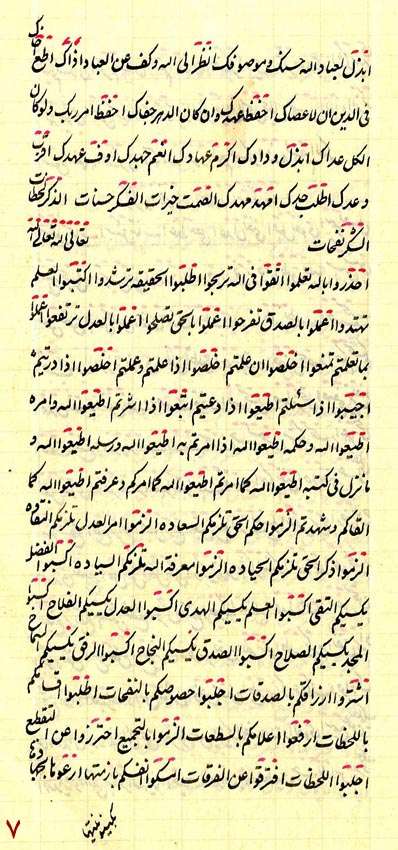 ابذل لعباد الله حسنك وموصوفك انظر الی الله وكف عن العباد اذاك اطع
فی الدین ان لاعصاك احفظ عهدك وان كان الدهر جفاك احفظ امر ربك ولوكان
الكل عداك ابذل ودادك اكرم عهادك انعم جهدك اوف عهدك
وعدك اطلب جدك امهد مهدك الصمت خیرات الفكر حسنات الذكر لحظات
الشكر نفحات تعالی الله تعالی الله
احذروا بالله تعلموا اتقوا فی الله تربحوا اطلبوا الحقیقه ترشدوا اكتسبوا العلم
تهتدوا اعملوا بالصدق تفرحوا اعملوا بالحق تصلحوا اعملوا بالعدل ترتفعوا اعملوا
بما تعلمتم تمنعوا اخلصوا ان علمتم اخلصوا اذا علمتم وعملتم اخلصوا اذا دریتم
اجیبوا اذا سئلتم اطیعوا اذا دعیتم اتبعوا اذا اشرتم اطیعوا الله وامره
اطیعوا الله وحكمه اطیعوا الله اذا امرتم به اطیعوا الله ورسله اطیعوا الله و
ما نزل فی كتبه اطیعوا الله كما امرتم اطیعوا الله كما امركم وعرفتم اطیعوا الله كما
القاكم وشهدتم الزموا حكم الحق تلزمكم السعاده الزموا امر العدل تلزمكم
الزموا ذكر الحق تلزمكم الحیاده الزموا معرفة الله تلزمكم السیاده اكسبوا الفضل
یكسبكم التقی اكسبوا العلم یكسبكم الهدی اكسبوا العدل یكسبكم الفلاح اكسبوا
المجد یكسبكم الصلاح اكسبوا الصدق یكسبكم النجاح اكسبوا الرفق یكسبكم
اشتروا ارزاقكم بالصدقات اجلبوا حصوصكم بالنفحات اطلبوا
باللحظات ارفعوا اعلامكم بالسطعات الزموا بالتجمیع احترزوا عن التقطع
اجلبوا اللحظات افترقوا عن الفرقات امسكوا انفسكم بازمتها
۷